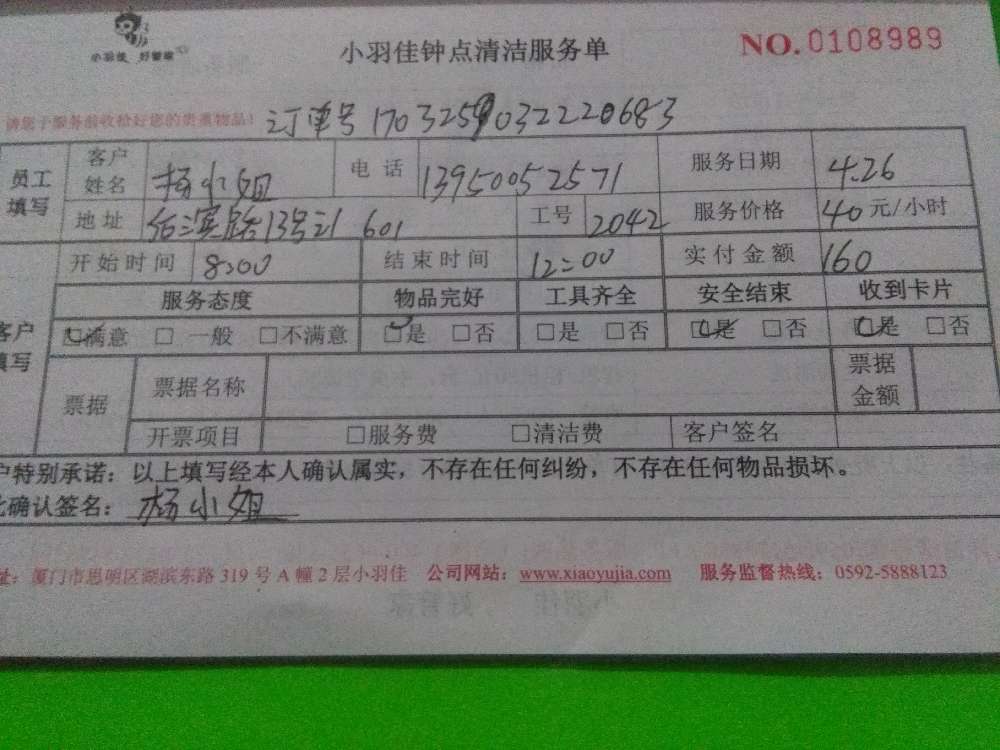 小羽佳 好管家
小羽佳钟点清洁服务单
NO.0108989
请您于服务前收拾好您的贵重物品！
订单号 1703259032220683
员工填写 客户姓名 杨小姐 电话 13950052571 服务日期 4.26
地址 滨路13号 601 工号 2042 服务价格 40元/小时
开始时间 8:00 结束时间 12:00 实付金额 160
服务态度 物品完好 工具齐全 安全结束 收到卡片
客户填写 □满意 □一般 □不满意 □是 □否 □是 □否 □是 □否 □是 □否
票据 票据名称 票据金额
开票项目 □服务费 □清洁费 客户签名
户特别承诺：以上填写经本人确认属实，不存在任何纠纷，不存在任何物品损坏。
此确认签名：杨小姐
址：厦门市思明区湖滨东路319号A幢2层小羽佳 公司网站：www.xiaoyujia.com 服务监督热线：0592-5888123